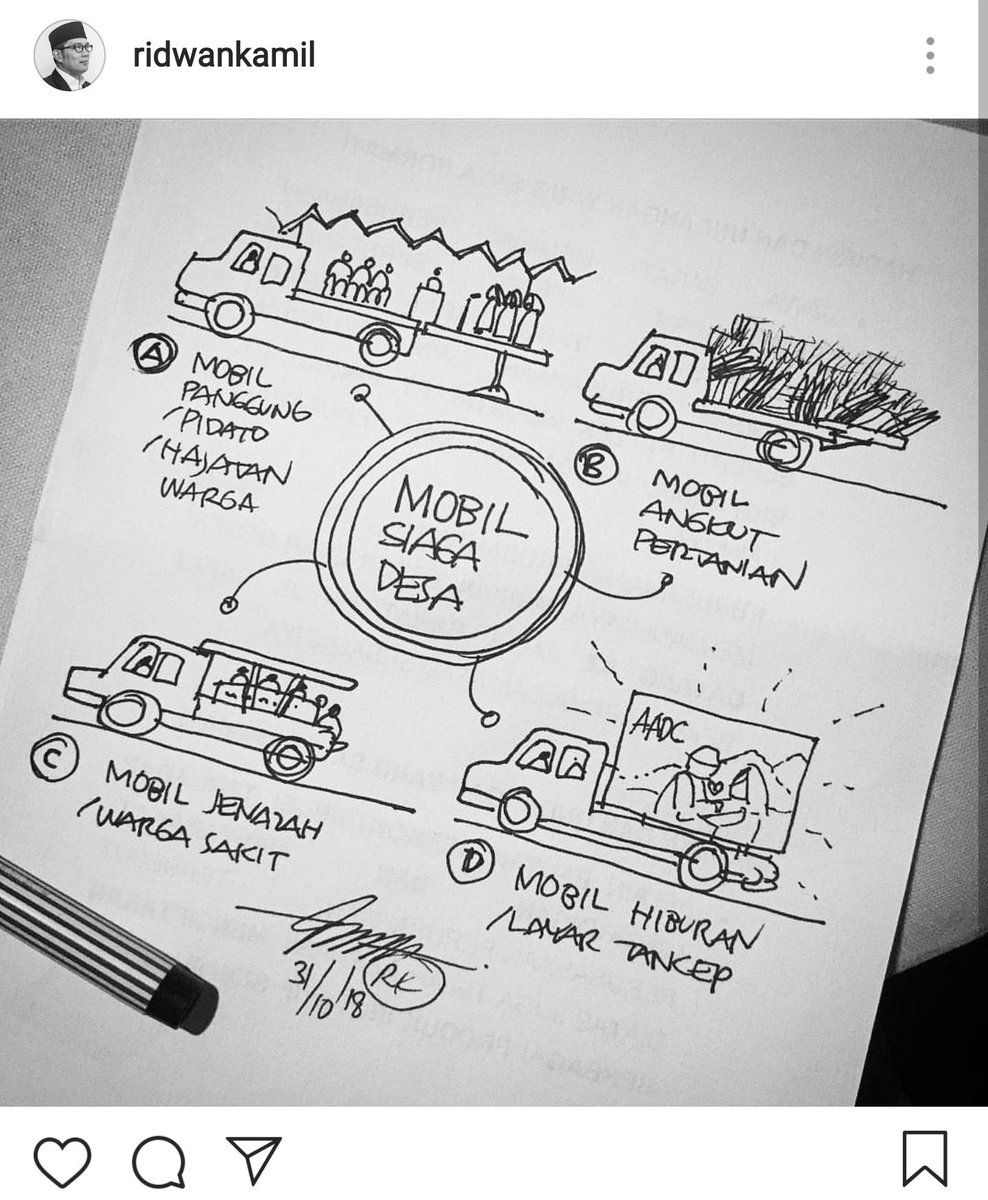 ridwankamil
A
MOBIL
PANGGUNG
/PIDATO
/HAJATAN
WARGA
B
MOBIL
ANGKUT
PERTANIAN
MOBIL
SIAGA
DESA
C
MOBIL JENAZAH
/WARGA SAKIT
AADC
D
MOBIL HIBURAN
/LAYAR TANCEP
31/10/18
RK